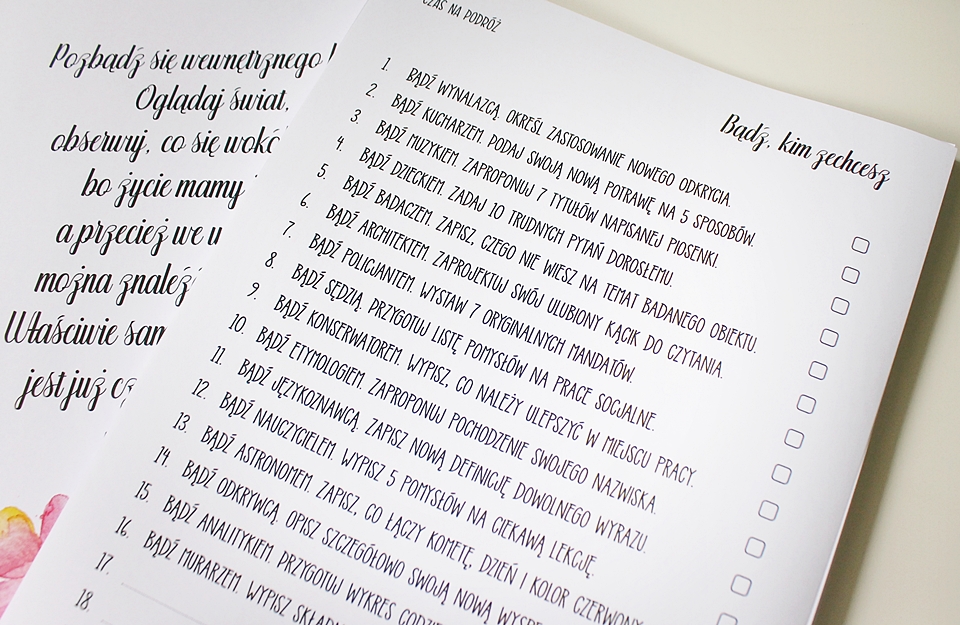 Pozbądź się wewnętrznego
Oglądaj świat,
obserwuj, co się
bo życie mamy
a przecież we
można
Właściwie
jest już
CZAS NA PODRÓŻ
Bądź, kim zechcesz
1. BĄDŹ WYNALAZCĄ. OKREŚL ZASTOSOWANIE NOWEGO ODKRYCIA.
2. BĄDŹ KUCHARZEM. PODAJ SWOJĄ NOWĄ POTRAWĘ NA 5 SPOSOBÓW.
3. BĄDŹ MUZYKIEM. ZAPROPONUJ 7 TYTUŁÓW NAPISANEJ PIOSENKI.
4. BĄDŹ DZIECKIEM. ZADAJ 10 TRUDNYCH PYTAŃ DOROSŁEMU.
5. BĄDŹ BADACZEM. ZAPISZ, CZEGO NIE WIESZ NA TEMAT BADANEGO OBIEKTU.
6. BĄDŹ ARCHITEKTEM. ZAPROJEKTUJ SWÓJ ULUBIONY KĄCIK DO CZYTANIA.
7. BĄDŹ POLICJANTEM. WYSTAW 7 ORYGINALNYCH MANDATÓW.
8. BĄDŹ SĘDZIĄ. PRZYGOTUJ LISTĘ POMYSŁÓW NA PRACE SOCJALNE.
9. BĄDŹ KONSERWATOREM. WYPISZ, CO NALEŻY ULEPSZYĆ W MIEJSCU PRACY.
10. BĄDŹ ETYMOLOGIEM. ZAPROPONUJ POCHODZENIE SWOJEGO NAZWISKA.
11. BĄDŹ JĘZYKOZNAWCĄ. ZAPISZ NOWĄ DEFINICJĘ DOWOLNEGO WYRAZU.
12. BĄDŹ NAUCZYCIELEM. WYPISZ 5 POMYSŁÓW NA CIEKAWĄ LEKCJĘ.
13. BĄDŹ ASTRONOMEM. ZAPISZ, CO ŁĄCZY KOMETĘ, DZIEŃ I KOLOR CZERWONY
14. BĄDŹ ODKRYWCĄ. OPISZ SZCZEGÓŁOWO SWOJĄ NOWĄ
15. BĄDŹ ANALITYKIEM. PRZYGOTUJ WYKRES
16. BĄDŹ MURARZEM. WYPISZ
17.
18.